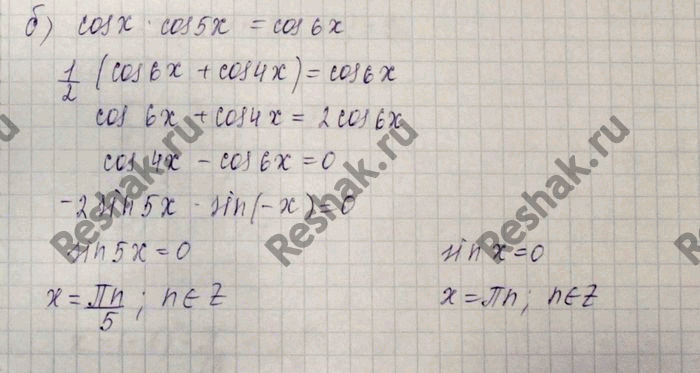 б) cosx · cos5x = cos6x
1/2 (cos6x + cos4x) = cos6x
cos 6x + cos4x = 2cos6x
cos 4x - cos6x = 0
-2sin5x · sin(-x) = 0
sin5x = 0 sinx = 0
x = πn/5 ; n ∈ Z x = πn; n ∈ Z
Reshak.ru
Reshak.ru
Reshak.ru
Reshak.ru